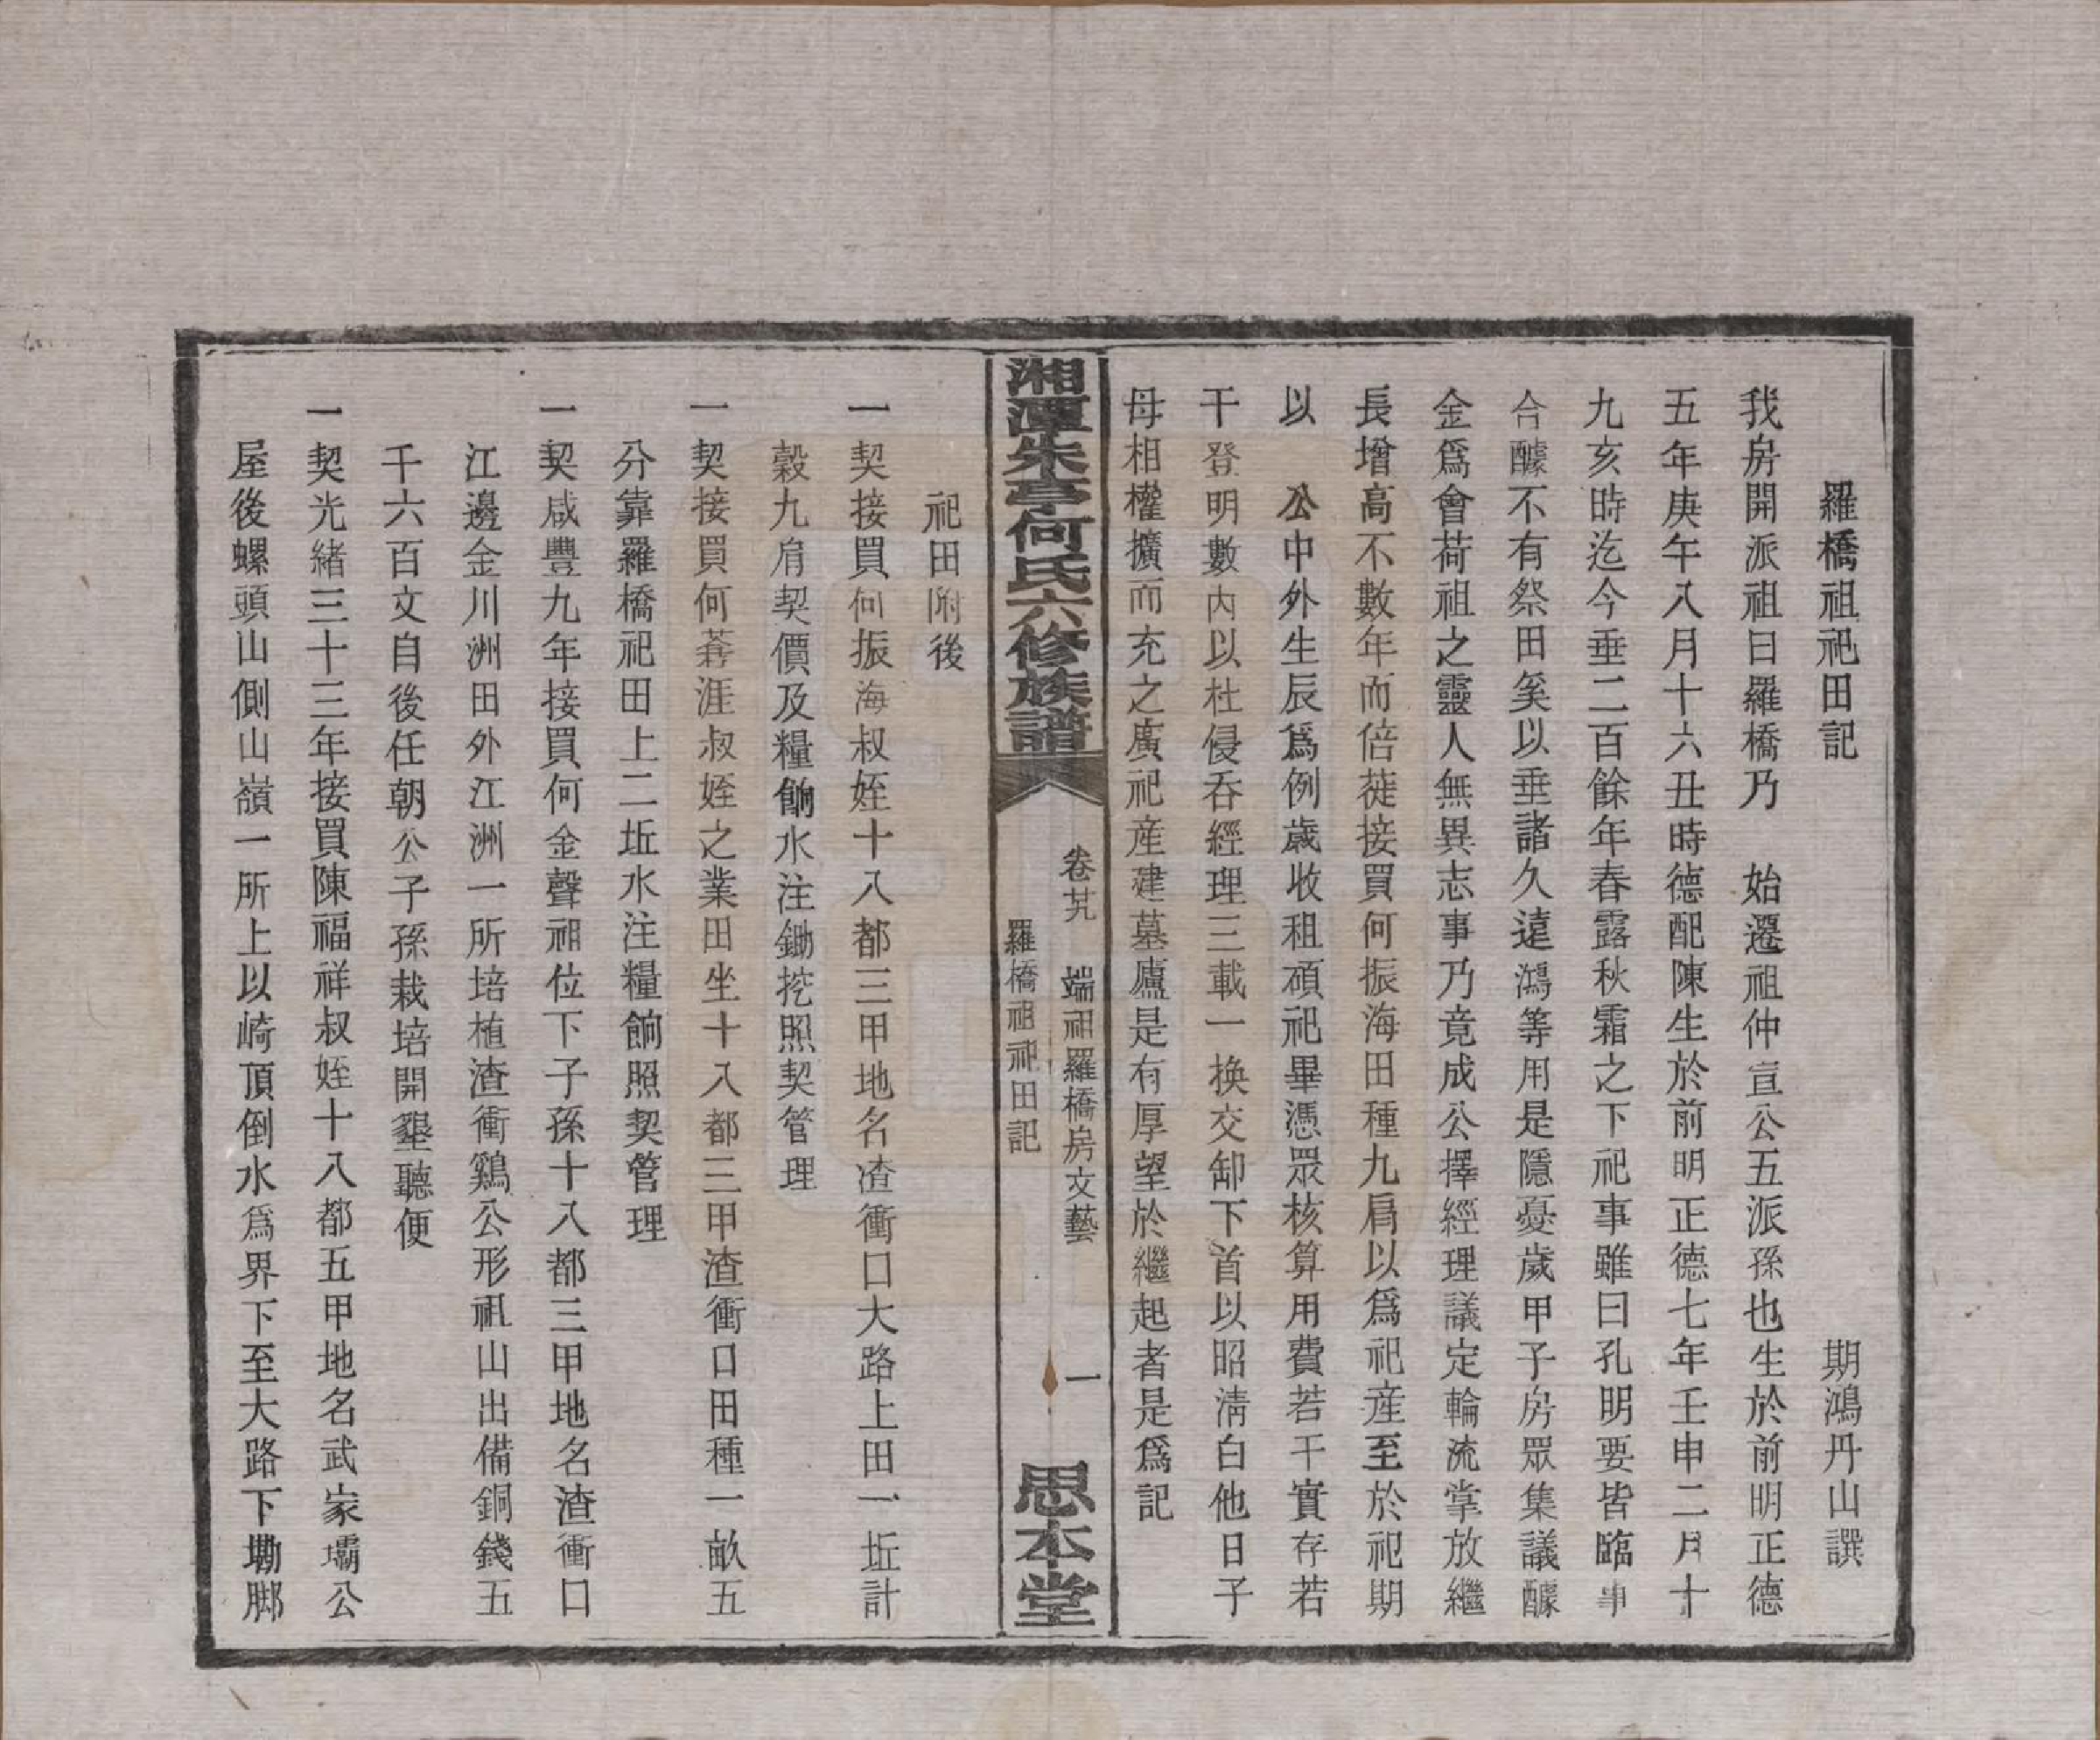 羅橋祖祀田記　期鴻丹山譔
我房開派祖曰羅橋乃　始遷祖仲宣公五派孫也生於前明正德
五年庚午八月十六丑時德配陳生於前明正德七年壬申二月十
九亥時迄今垂二百餘年春露秋霜之下祀事雖曰孔明要皆臨事
合醵不有祭田奚以垂諸久遠鴻等用是隱憂歲甲子房眾集議醵
金爲會荷祖之靈人無異志事乃竟成公擇經理議定輪流掌放繼
長增高不數年而倍蓰接買何振海田種九肩以爲祀産至於祀期
以　公中外生辰爲例歲收租碩祀畢憑眾核算用費若干實存若
干登明數內以杜侵吞經理三載一換交卸下首以昭淸白他日子
母相權擴而充之廣祀産建墓廬是有厚望於繼起者是爲記
湘潭朱亭何氏六修族譜
卷廿九　端祖羅橋房文藝　一
羅橋祖祀田記
思本堂
祀田附後
一契接買何振海叔姪十八都三甲地名渣衝口大路上田一坵計
穀九肩契價及糧餉水注鋤挖照契管理
一契接買何蒼涯叔姪之業田坐十八都三甲渣衝口田種一畝五
分靠羅橋祀田上二坵水注糧餉照契管理
一契咸豐九年接買何金聲祖位下子孫十八都三甲地名渣衝口
江邊金川洲田外江洲一所培植渣衝鷄公形祖山出備銅錢五
千六百文自後任朝公子孫栽培開墾聽便
一契光緒三十三年接買陳福祥叔姪十八都五甲地名武家壩公
屋後螺頭山側山嶺一所上以崎頂倒水爲界下至大路下墈脚